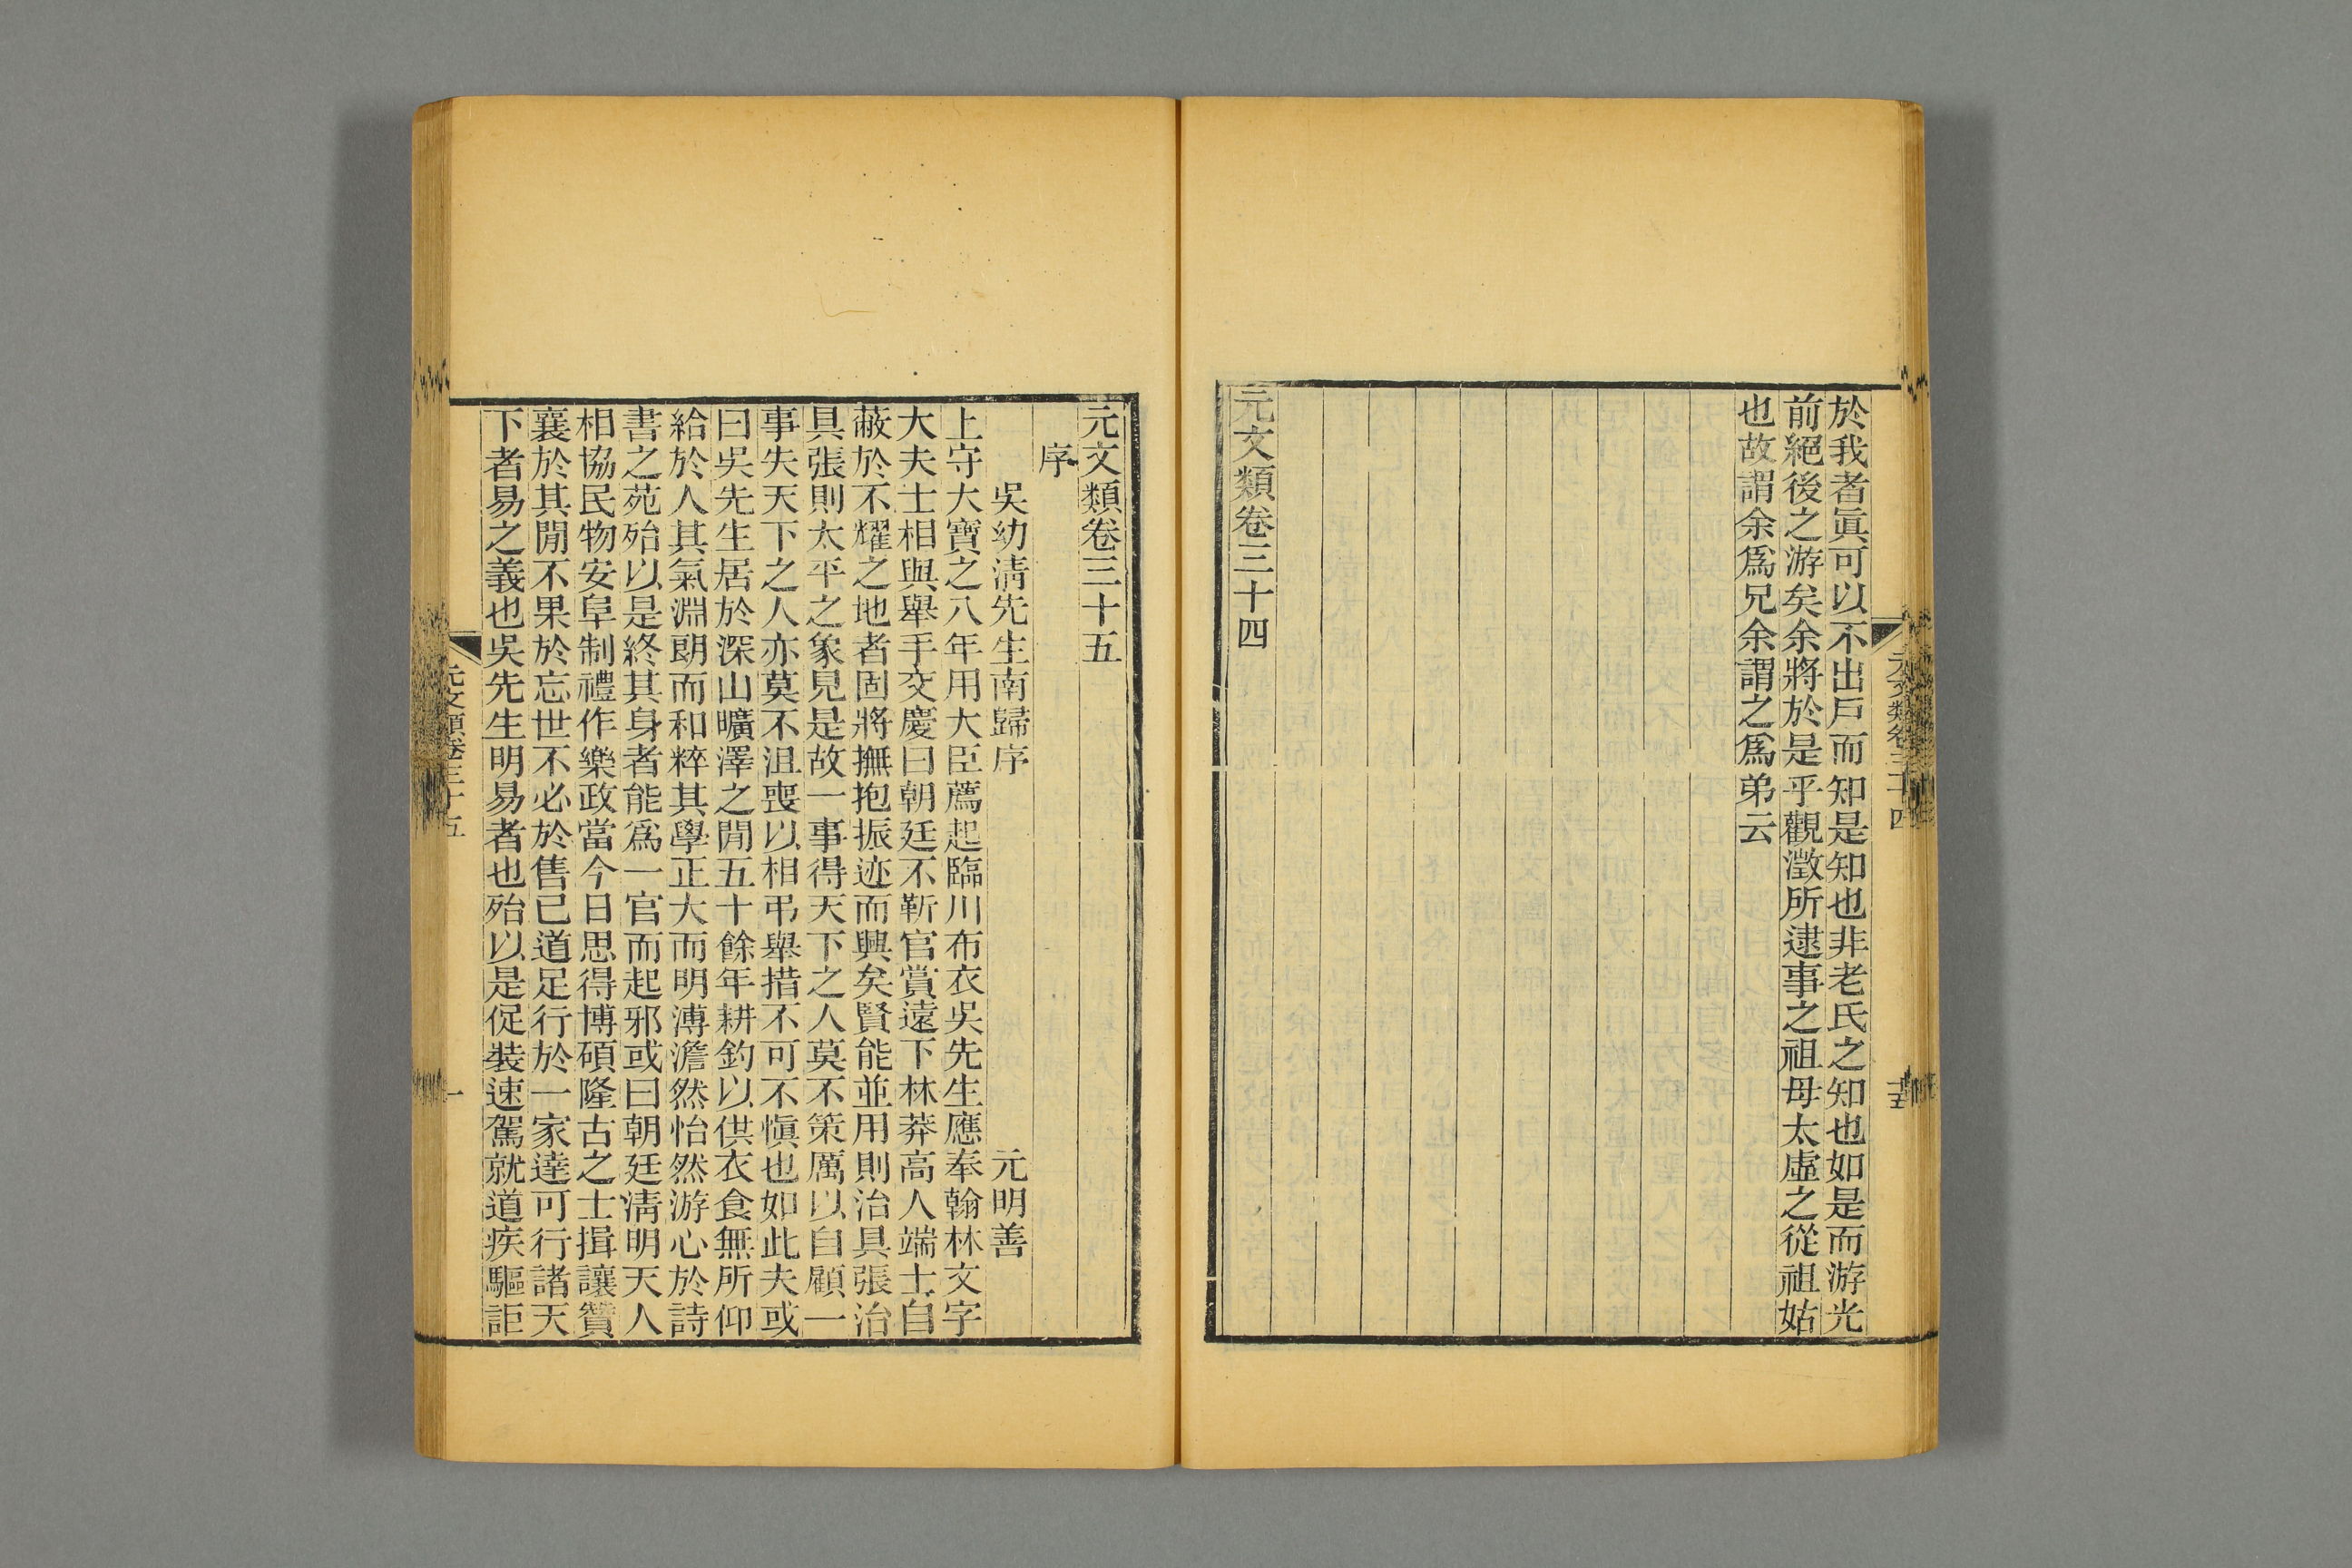 於我者眞可以不出戶而知是知也非老氏之知也如是而游光
前絕後之游矣余將於是乎觀澂所逮事之祖母太虛之從祖姑
也故謂余爲兄余謂之爲弟云
元文類卷三十四
元文類卷三十五
序
吳幼淸先生南歸序 元明善
上守大寶之八年用大臣薦起臨川布衣吳先生應奉翰林文字
大夫士相與舉手交慶曰朝廷不靳官賞遠下林莽高人端士自
蔽於不耀之地者固將撫抱振迹而興矣賢能並用則治具張治
具張則太平之象見是故一事得天下之人莫不策厲以自顧一
事失天下之人亦莫不沮喪以相弔舉措不可不愼也如此夫或
曰吳先生居於深山曠澤之閒五十餘年耕釣以供衣食無所仰
給於人其氣淵朗而和粹其學正大而明溥澹然怡然游心於詩
書之苑殆以是終其身者能爲一官而起邪或曰朝廷淸明天人
相協民物安阜制禮作樂政當今日思得博碩隆古之士揖讓贊
襄於其閒不果於忘世不必於售已道足行於一家達可行諸天
下者易之義也吳先生明易者也殆以是促裝速駕就道疾驅詎
元文類卷三十五
一